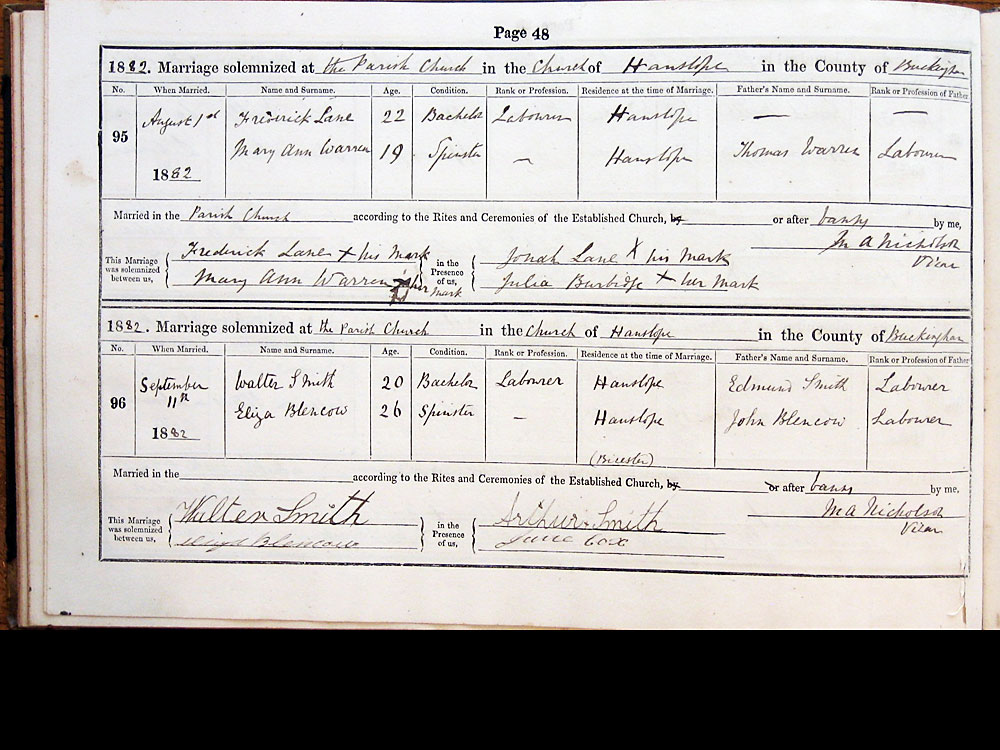 Page 48
1882. Marriage solemnized at the Parish Church in the Church of Hanslope in the County of Buckingham
No. When Married. Name and Surname. Age. Condition. Rank or Profession. Residence at the time of Marriage. Father's Name and Surname. Rank or Profession of Father.
95 August 1st Frederick Lane 22 Bachelor Labourer Hanslope — —
Mary Ann Warren 19 Spinster — Hanslope Thomas Warren Labourer
1882
Married in the Parish Church according to the Rites and Ceremonies of the Established Church, by or after banns by me,
M A Nicholson
Vicar
This Marriage was solemnized between us, Frederick Lane + his Mark in the Presence of us, Jonah Lane X his Mark
Mary Ann Warren + her Mark Julia Burbidge + her Mark
1882. Marriage solemnized at the Parish Church in the Church of Hanslope in the County of Buckingham
No. When Married. Name and Surname. Age. Condition. Rank or Profession. Residence at the time of Marriage. Father's Name and Surname. Rank or Profession of Father
96 September 11th Walter Smith 20 Bachelor Labourer Hanslope Edmund Smith Labourer
Eliza Blencow 26 Spinster — Hanslope John Blencow Labourer
1882
(Bicester)
Married in the according to the Rites and Ceremonies of the Established Church, by or after banns by me,
M A Nicholson
Vicar
This Marriage was solemnized between us, Walter Smith in the Presence of us, Arthur Smith
Eliza Blencow Jane Cox